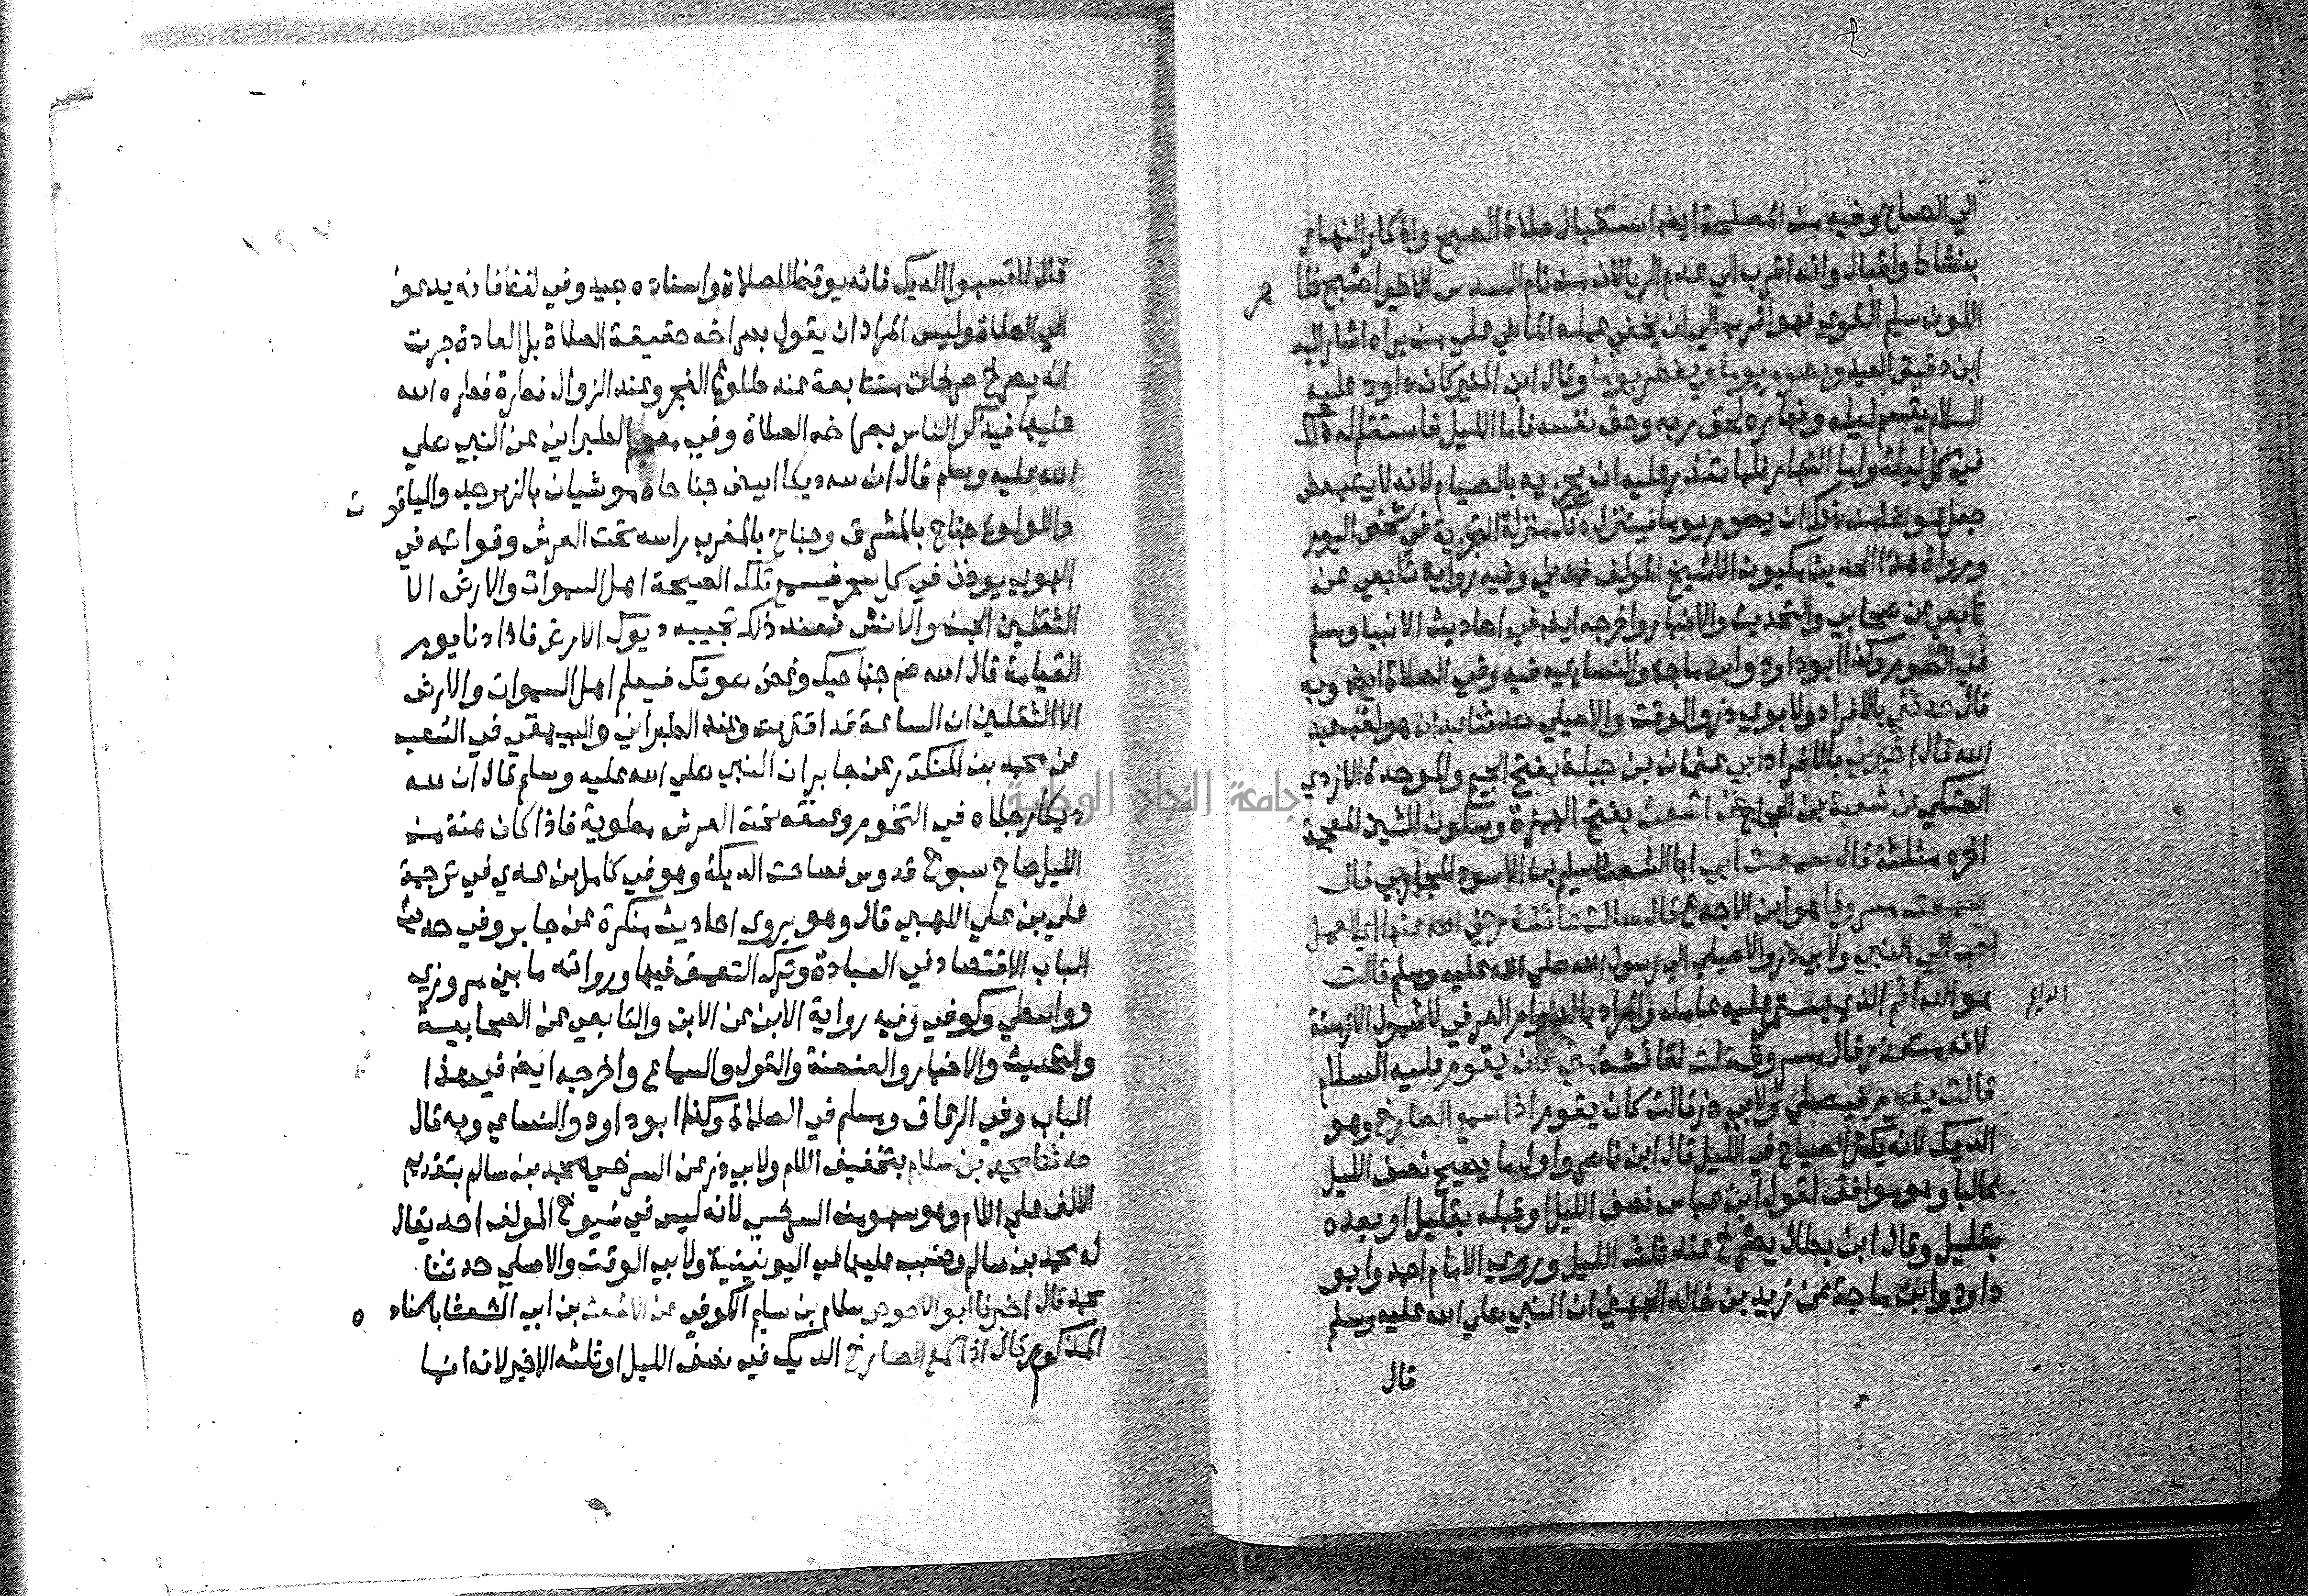 الي الصباح وفيه من المصلحة ايضا استقبال صلاة الصبح واذكار النهار
بنشاط واقبال وانه اقرب الي عدم الريا لان من نام السدس الاخير اصبح ظا
هر
اللون سليم القوي فهو اقرب الي ان يخفي عمله الماضي علي من يراه اشار اليه
ابن دقيق العيد ويصوم يوما ويفطر يوما وقال ابن المنير كان داود عليه
السلام يقسم ليله ونهاره لحق ربه وحق نفسه فاما الليل فاستقام له ذلك
في كل ليلة واما النهار فلما تعذر عليه ان يجزيه بالصيام لانه لا يتبعض
جعل عوضا من ذلك ان يصوم يوما فيتنزل ذلك منزلة التجزية في شخص اليوم
ورواة هذا الحديث مكيون الا شيخ المولف فمدني وفيه رواية تابعي عن
تابعي عن صحابي والتحديث والاخبار واخرجه ايضا في احاديث الانبيا ومسلم
في الصوم وكذا ابو داود وابن ماجة والنساءي فيه وفي الصلاة ايضا وبه
قال حدثني بالافراد ولابوي ذر والوقت والاصيلي حدثنا عبدان هو لقب عبد
الله قال اخبرني بالافراد ابي عثمان بن جبلة بفتح الجيم والموحدة الازدي
العتكي عن شعبة بن الحجاج عن اشعث بفتح الهمزة وسكون الشين المعجمة
اخره مثلثة قال سمعت ابي ابا الشعثا سليم بن الاسود المحاربي قال
سمعت مسروقا هو ابن الاجدع قال سالت عائشة رضي الله عنها اي العمل
احب الي النبي ولابي ذر والاصيلي الي رسول الله صلي الله عليه وسلم قالت
هو الدائم الذي يستمر عليه عامله والمراد بالدوام العرفي لا شمول الازمنة
الدايم
لانه متعذر قال مسروق قلت لعائشة متي كان يقوم عليه السلام
قالت يقوم فيصلي ولابي ذر قالت كان يقوم اذا سمع الصارخ وهو
الديك لانه يكثر الصياح في الليل قال ابن ناصر واول ما يصيح نصف الليل
غالبا وهو موافق لقول ابن عباس نصف الليل او قبله بقليل او بعده
بقليل وقال ابن بطال يصرخ عند ثلث الليل وروي الامام احمد وابو
داود وابن ماجة عن زيد بن خالد الجهني ان النبي صلي الله عليه وسلم
قال
قال لا تسبوا الديك فانه يوقظ للصلاة واسناده جيد وفي لفظ فانه يدعو
الي الصلاة وليس المراد ان يقول بصراخه حقيقة الصلاة بل العادة جرت
انه يصرخ صرخات متتابعة عند طلوع الفجر وعند الزوال فطرة فطره الله
عليها فيذكر الناس بصراخه الصلاة وفي معجم الطبراني عن النبي صلي
الله عليه وسلم قال ان لله ديكا ابيض جناحاه موشيان بالزبرجد والياقو
ت
واللولوء جناح بالمشرق وجناح بالمغرب راسه تحت العرش وقوائمه في
الهوي يوذن في كل سحر فيسمع تلك الصيحة اهل السموات والارض الا
الثقلين الجن والانس فعند ذلك تجيبه ديوك الارض فاذا دنا يوم
القيامة قال الله ضم جناحيك وغض صوتك فيعلم اهل السموات والارض
الا الثقلين ان الساعة قد اقتربت وعند الطبراني والبيهقي في الشعب
عن محمد بن المنكدر عن جابر ان النبي صلي الله عليه وسلم قال ان لله
ديكا رجلاه في التخوم وعنقه تحت العرش مطوية فاذا كان هنة من
الليل صاح سبوح قدوس فصاحت الديكة وهو في كامل ابن عدي في ترجمة
علي بن علي اللهبي قال وهو يروي احاديث منكرة عن جابر وفي حديث
الباب الاقتصاد في العبادة وترك التعمق فيها ورواته ما بين مروزي
وواسطي وكوفي وفيه رواية الابن عن الاب والتابعي عن الصحابية
والتحديث والاخبار والعنعنة والقول والسماع واخرجه ايضا في هذا
الباب وفي الرقاق ومسلم في الصلاة وكذا ابو داود والنساءي وبه قال
حدثنا محمد بن سلام بتخفيف اللام ولابي ذر عن السرخسي محمد بن سالم بتقديم
الالف علي اللام وهو سهو من السرخسي لانه ليس في شيوخ المولف احد يقال
له محمد بن سالم وضبب عليها في اليونينية ولابي الوقت والاصيلي حدثنا
محمد قال اخبرنا ابو الاحوص سلام بن سليم الكوفي عن الاشعث بن ابي الشعثا باسناد
ه
المذكور قال اذا سمع الصارخ الديك في نصف الليل او ثلثه الاخير لانه انما
جامعة النجاح الوطنية